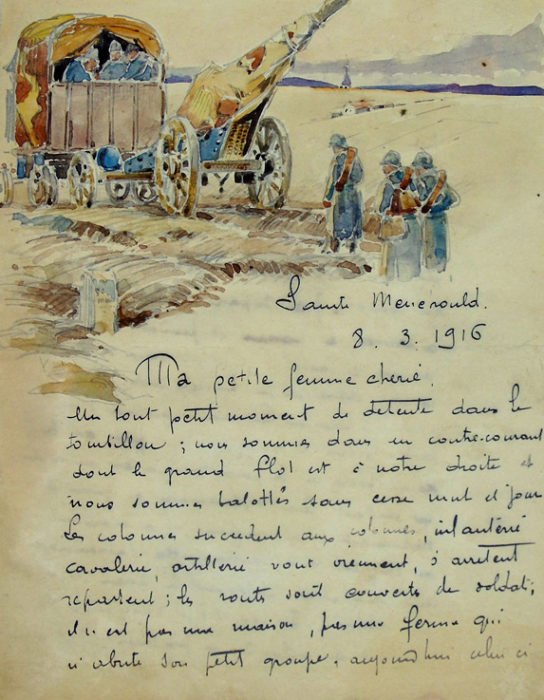 Sainte Menehould.
8. 3. 1916
Ma petite femme cherie.
Un tout petit moment de detente dans le
tourbillon ; nous sommes dans un contre-courant
dont le grand flot est à notre droite et
nous sommes balottés sans cesse nuit et jour
Les colonnes succedent aux colonnes, infanterie
cavalerie, artillerie vont viennent, s'arretent
repartent ; les routes sont couvertes de soldats,
il n'est pas une maison, pas une ferme qui
n'abrite son petit groupe. aujourd'hui celui ci